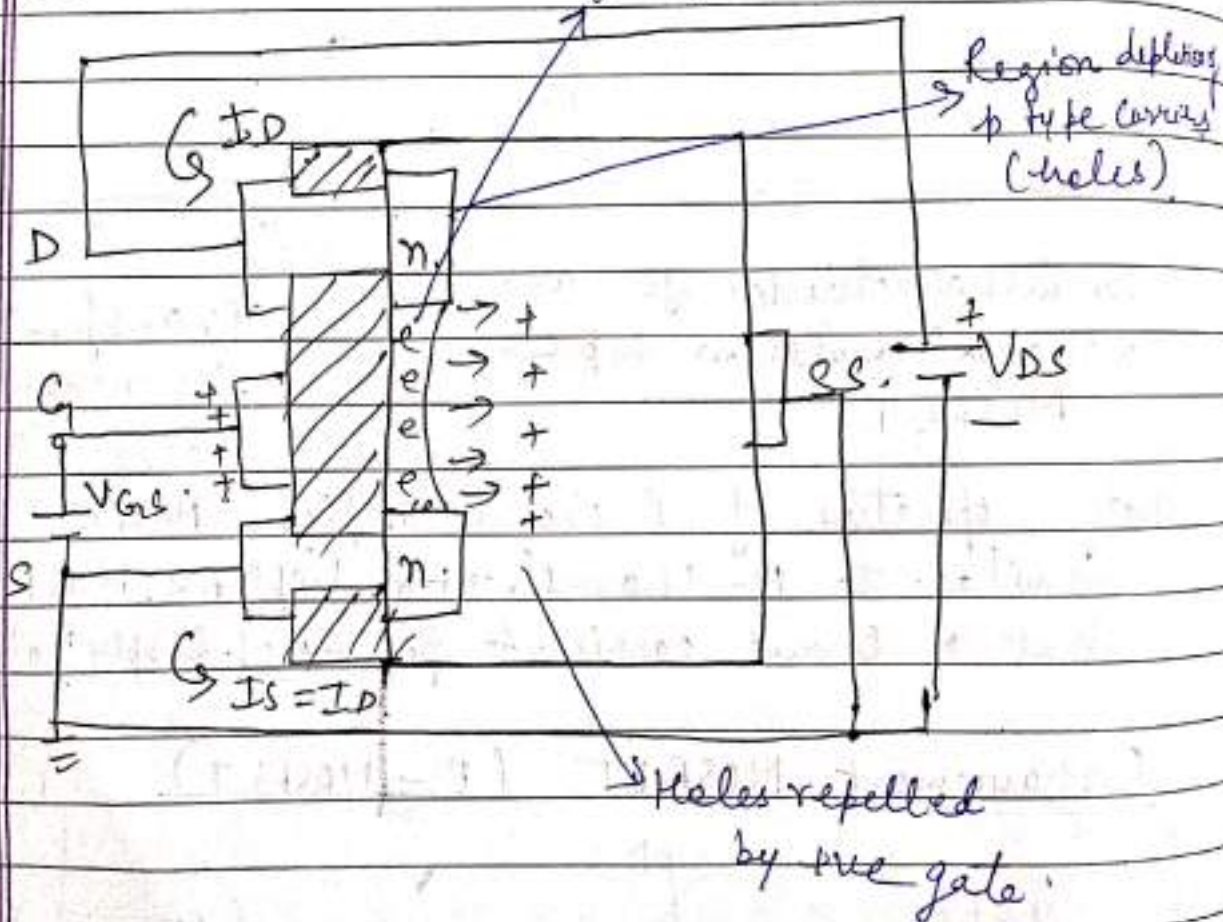 Region depletion
p type carriers
(holes)
ID
D
n
+
e → +
e → +
SS.
+
VDS
-
G
+
+
+
+
e → +
VGS.
e → +
+
S
n.
IS = ID
Holes repelled
by +ve gate.